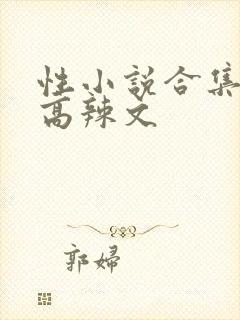 性小说合集
高辣文
郭婦